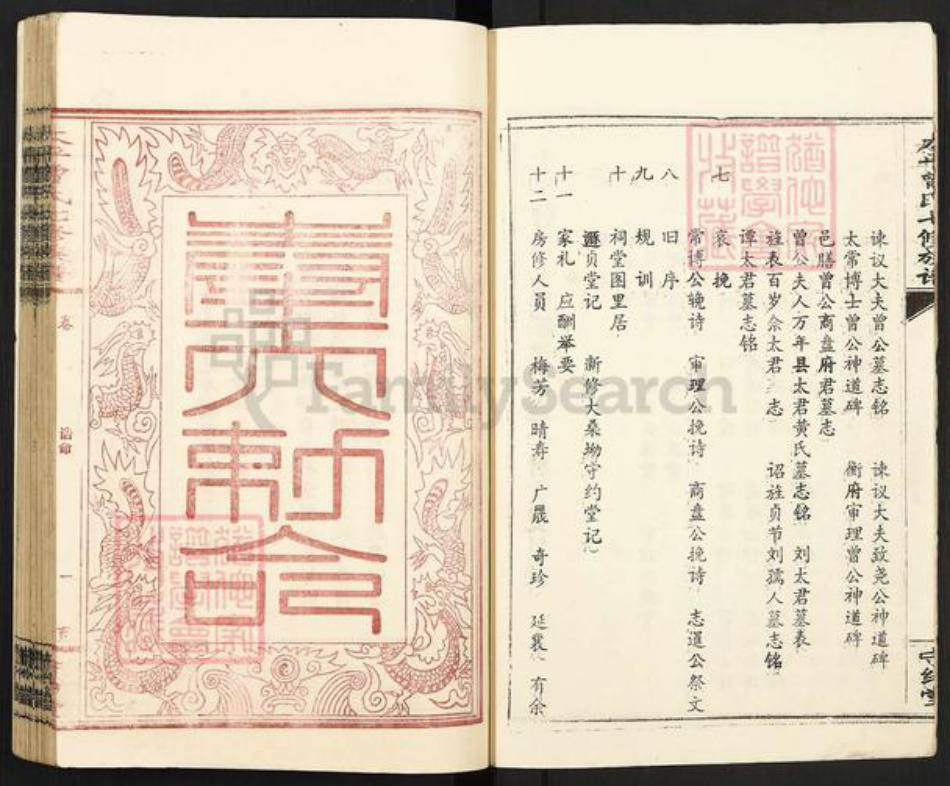 谏议大夫曾公墓志铭 谏议大夫致尧公神道碑
太常博士曾公神道碑 衡府审理曾公神道碑
邑膳曾公商盘府君墓志
曾公夫人万年县太君黄氏墓志铭 刘太君墓表
旌表百岁佘太君 志 诏旌贞节刘孺人墓志铭
谭太君墓志铭
七 哀挽
常博公挽诗 审理公挽诗 商盘公挽诗 志暹公祭文
八 旧序
九 规训
十 祠堂图里居
贞堂记 新修大桑坳守约堂记
十一 家礼 应酬举要
十二 房修人员 梅芳 晴寿 广晟 奇珍 延襄 有余
曾氏七修族谱
守约堂
卷
诰命
一
奉天敕命
FamilySearch